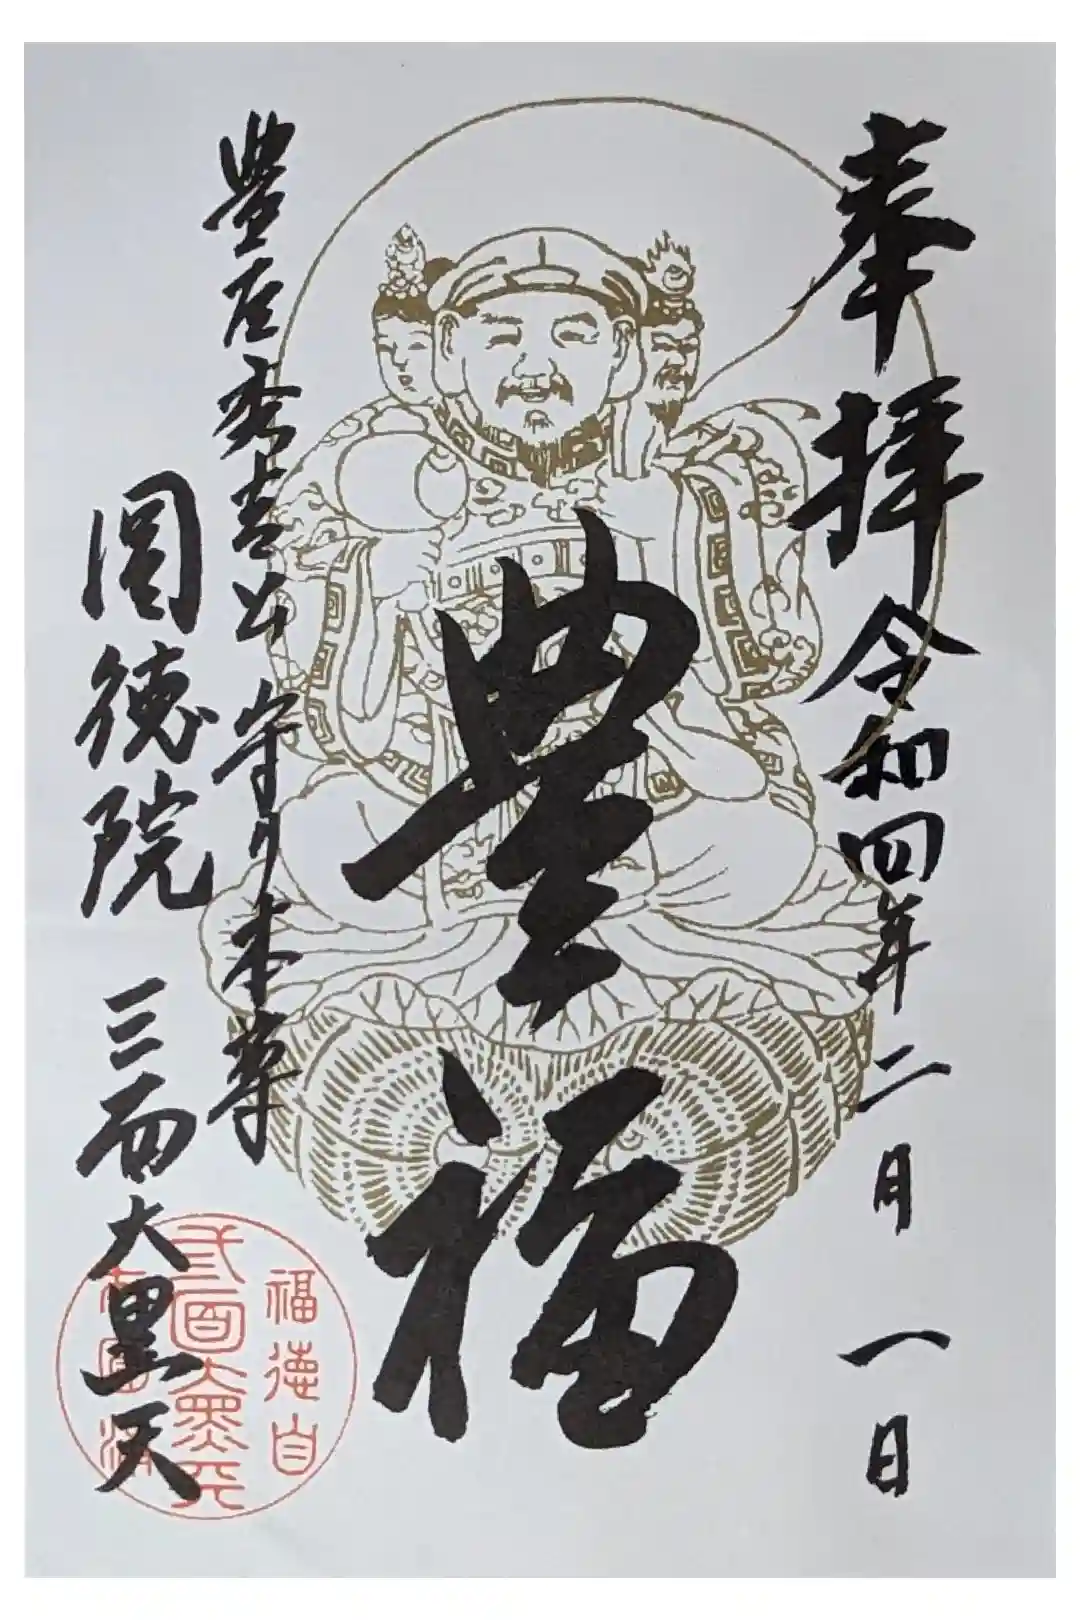 奉拝
令和四年二月一日
豊福
豊臣秀吉公守り本尊
圓徳院
三面大黒天
福徳自
三面大黒天